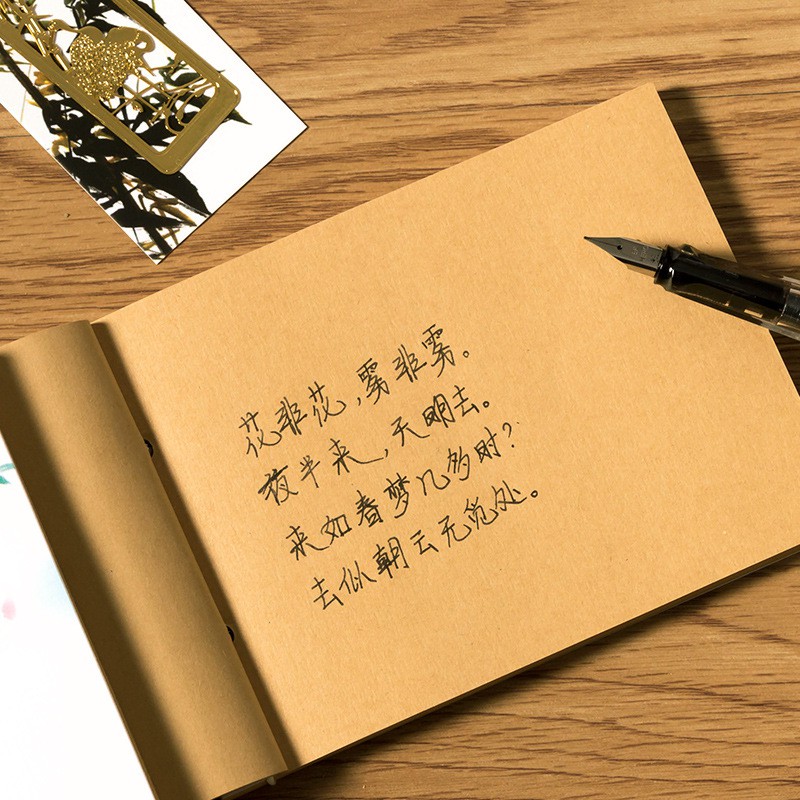 花非花，雾非雾。
夜半来，天明去。
来如春梦几多时？
去似朝云无觅处。